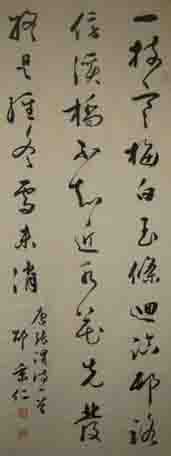 一枝寒梅白玉條迴臨邨路
傍溪橋不知近水花先發
疑是經冬雪未消
唐張謂詩一首
景仁